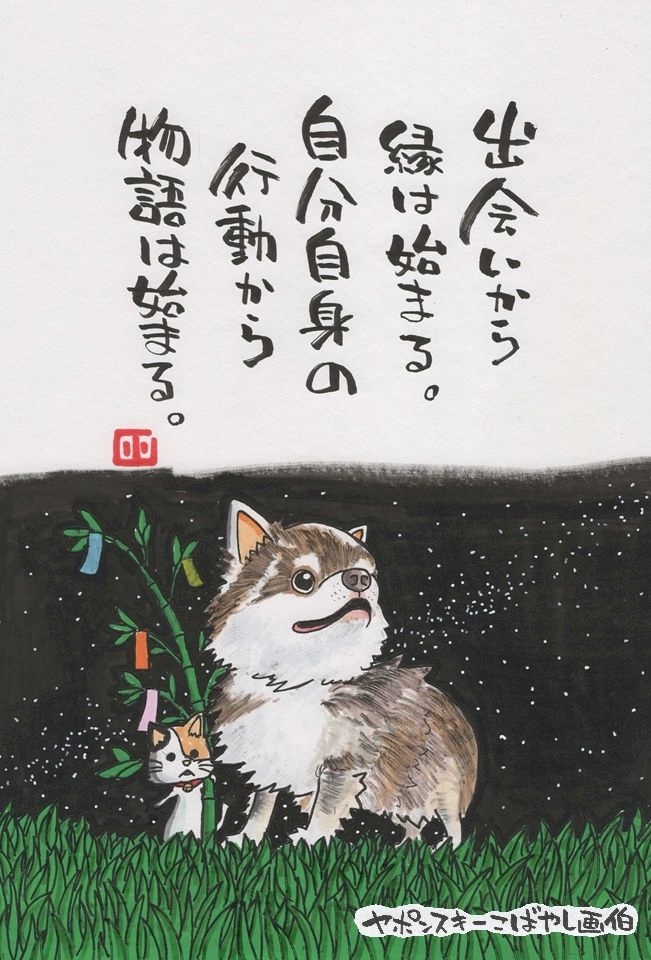 出会いから
縁は始まる。
自分自身の
行動から
物語は始まる。
ヤポンスキーこばやし画伯